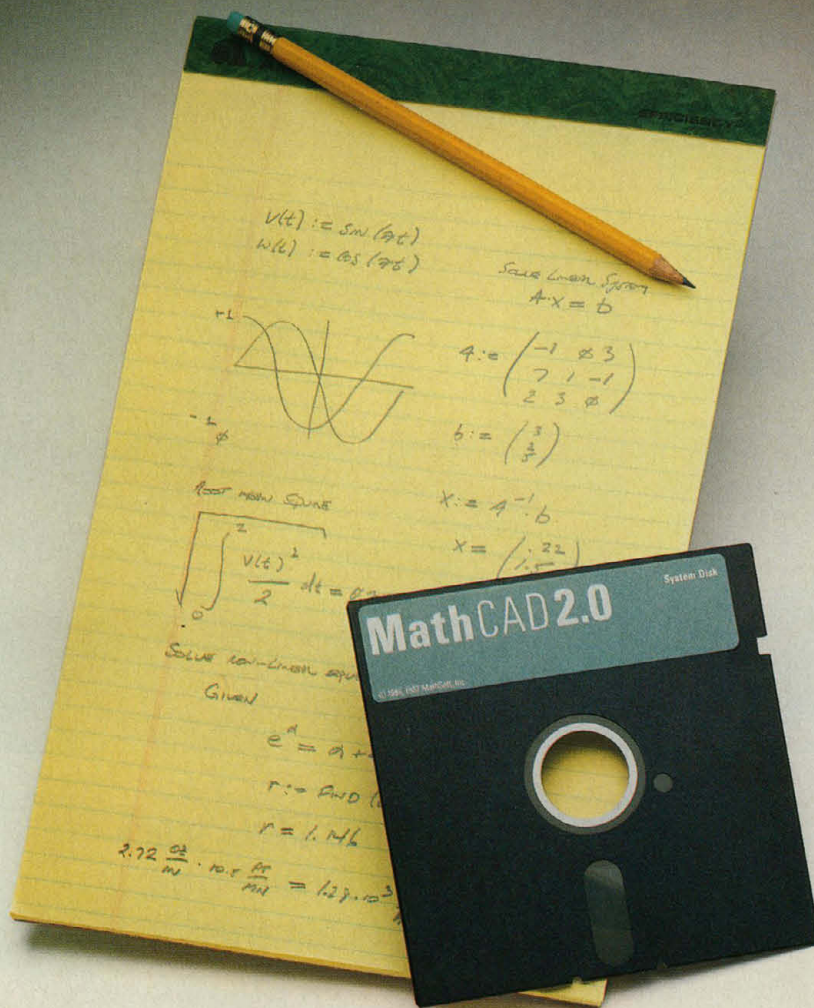 EFFICIENCY
v(t) := sin (7t)
w(t) := cos (7t)
Solve Linear System
A·x = b
+1
-1
ø
A := ( -1 ø 3
7 1 -1
2 3 ø )
b := ( 3
2
5 )
Root mean square
2
v(t)²
2
dt =
0
x := A⁻¹·b
x = ( .22
1.5
Solve non-linear equ
Given
e^α = α +
r := FIND (
r = 1.146
2.72 oz/in · 10.5 ft/min = 1.29·10³
MathCAD 2.0
System Disk
© 1986, 1987 MathSoft, Inc.